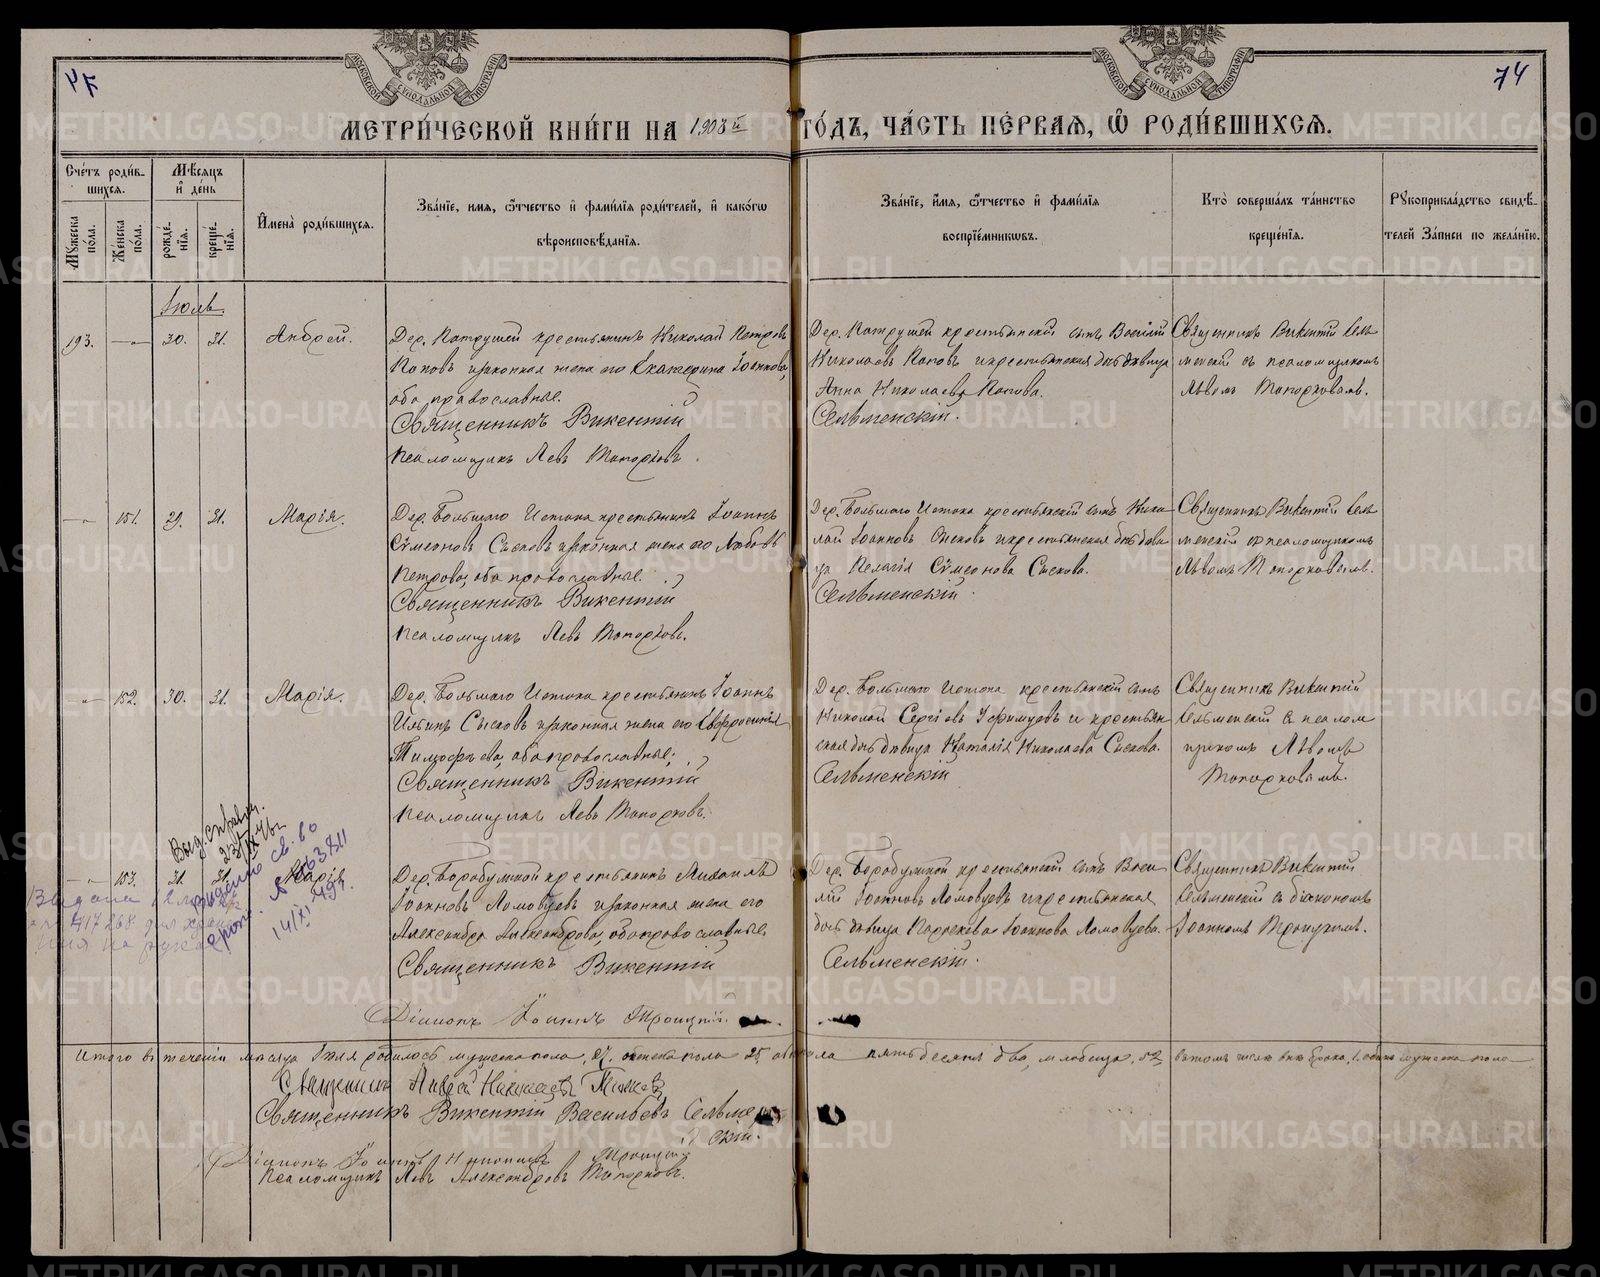 47
74
МОСКОВСКОЙ СѴНОДАЛЬНОЙ ТИПОГРАФІИ
МОСКОВСКОЙ СѴНОДАЛЬНОЙ ТИПОГРАФІИ
МЕТРИ́ЧЕСКОЙ КНИ́ГИ НА 1903й ГО́ДЪ, ЧА́СТЬ ПЕ́РВАЯ, Ѡ РОДИ́ВШИХСЯ.
Сче́тъ роди́в-
шихся.
Мѣ́сяцъ
и де́нь
Мꙋжеска по́ла.
Же́нска по́ла.
рожде́-
нїя.
креще́-
нїя.
И҆мена̀ роди́вшихся.
Зва́нїе, имя, ѻ҆́тчество и҆ фами́лїя роди́телей, и҆ како́гѡ
вѣроисповѣ́данїя.
Зва́нїе, и҆́мя, ѻ҆́тчество и҆ фами́лїя
воспрїе́мникѡвъ.
Кто̀ соверша́лъ та́инство
креще́нїя.
Рꙋкоприкла́дство свидѣ́-
телей За́писи по жела́нїю.
Іюль
193. — 30. 31. Андрей.
Дер. Патрушей крестьянинъ Николай Петровъ
Поповъ и законная жена его Екатерина Іоаннова,
оба православные.
Священникъ Викентій
Псаломщикъ Левъ Топорковъ.
Дер. Патрушей крестьянскій сынъ Василій
Николаевъ Поповъ и крестьянская дочь дѣвица
Анна Николаева Попова.
Сельменскій.
Священникъ Викентій Сель-
менскій съ псаломщикомъ
Львомъ Топорковымъ.
— 151. 29. 31. Марія.
Дер. Большаго Истока крестьянинъ Іоаннъ
Сѵмеоновъ Сысковъ и законная жена его Любовь
Петрова, оба православные.
Священникъ Викентій
Псаломщикъ Левъ Топорковъ.
Дер. Большаго Истока крестьянскій сынъ Нико-
лай Іоанновъ Сысковъ и крестьянская дочь дѣви-
ца Пелагія Сѵмеонова Сыскова.
Сельменскій.
Священникъ Викентій Сель-
менскій съ псаломщикомъ
Львомъ Топорковымъ.
— 152. 30. 31. Марія.
Дер. Большаго Истока крестьянинъ Іоаннъ
Ильинъ Сысковъ и законная жена его Евфросинія
Тимофѣева, оба православные;
Священникъ Викентій
Псаломщикъ Левъ Топорковъ.
Дер. Большаго Истока крестьянскій сынъ
Николай Сергіевъ и крестьян-
ская дочь дѣвица Наталія Николаева Сыскова.
Сельменскій
Священникъ Викентій
Сельменскій съ псалом-
щикомъ Львомъ
Топорковымъ.
Выд. справка.
23/IX 46
св-во
14/XI 49г.
Выдана
417268 для
на руки
— 153. 31. 31. Марія
Дер. Бородулиной крестьянинъ Михаилъ
Іоанновъ Ломовцевъ и законная жена его
Александра Александрова, оба православные.
Священникъ Викентій
Діаконъ Іоаннъ Троицкій
Дер. Бородулиной крестьянскій сынъ Васи-
лій Іоанновъ Ломовцевъ и крестьянская
дочь дѣвица Параскева Іоаннова Ломовцева.
Сельменскій.
Священникъ Викентій
Сельменскій съ діакономъ
Іоанномъ Троицкимъ.
Итого въ теченіи мѣсяца Іюля родилось мужеска пола 27, женска пола 25, обоего пола пятьдесятъ два младенца, 52,
Священникъ Андрей Николаевъ
Священникъ Викентій Васильевъ Сельмен-
скій.
Діаконъ Іоаннъ Троицкій
Псаломщикъ Левъ Александровъ Топорковъ.
METRIKI.GASO-URAL.RU